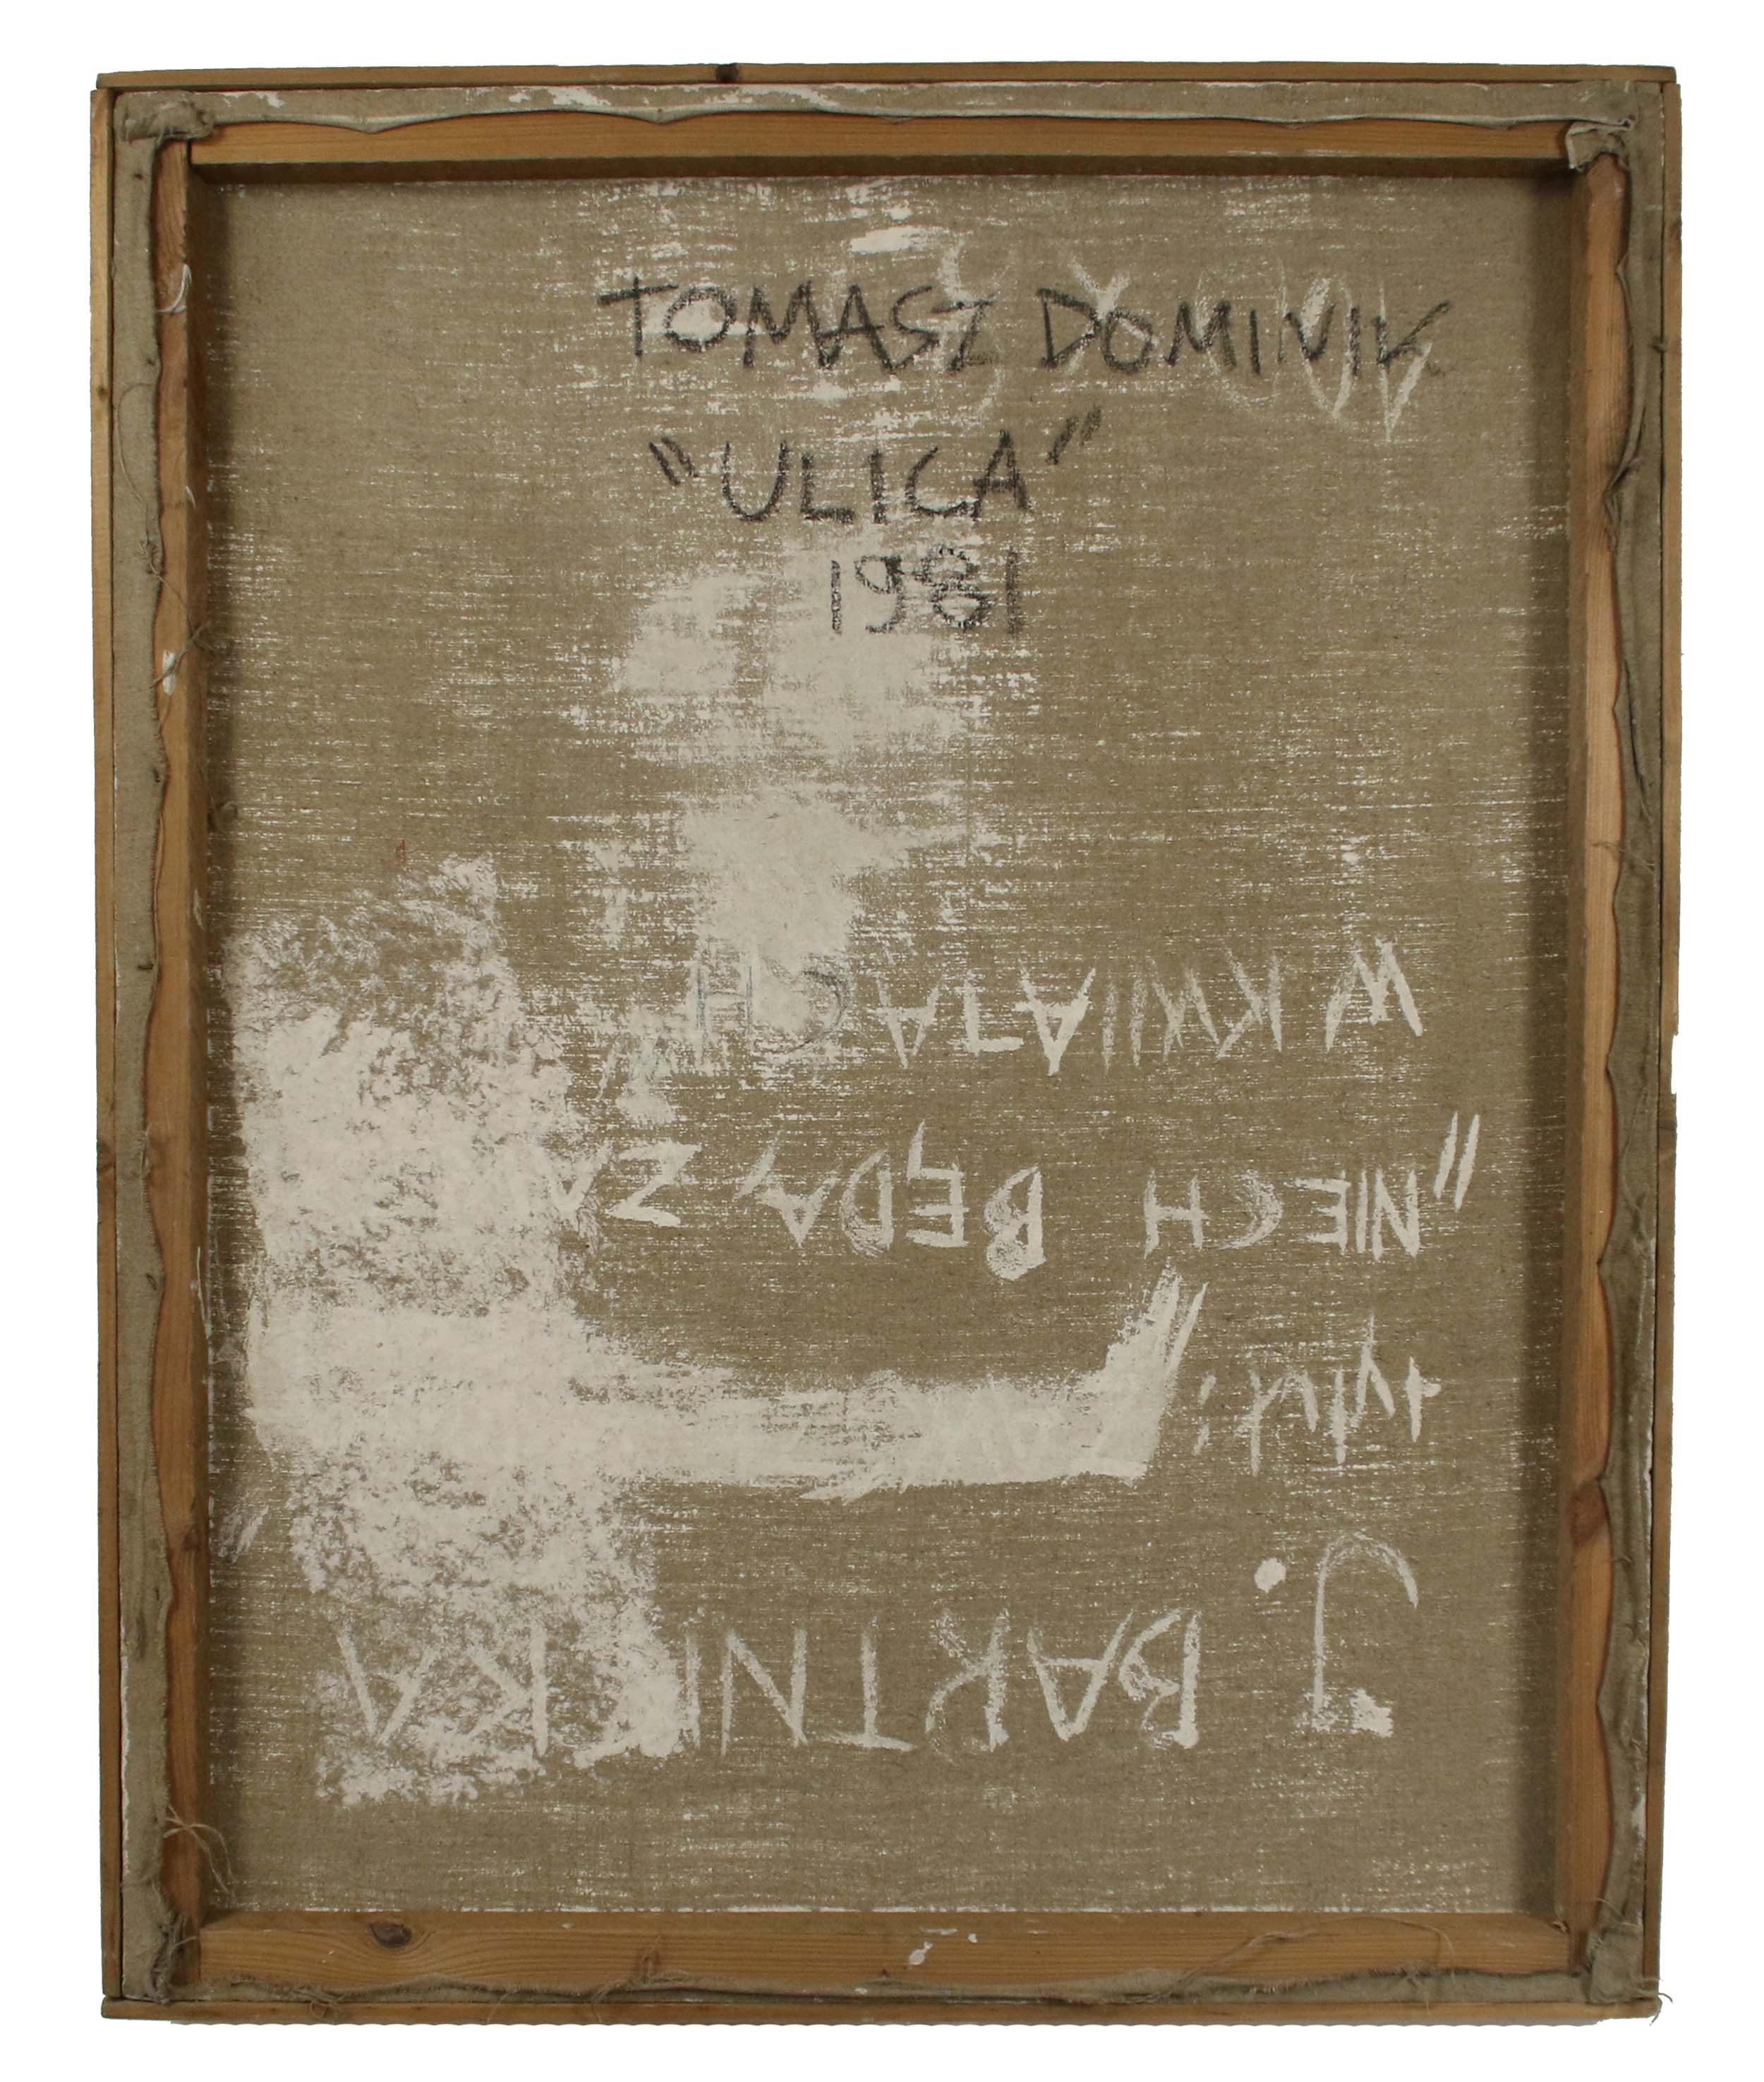 TOMASZ DOMINIK
"ULICA"
1981
J. BARTNICKA
tytuł:
"NIECH BĘDĄ ZA
W KWIATACH